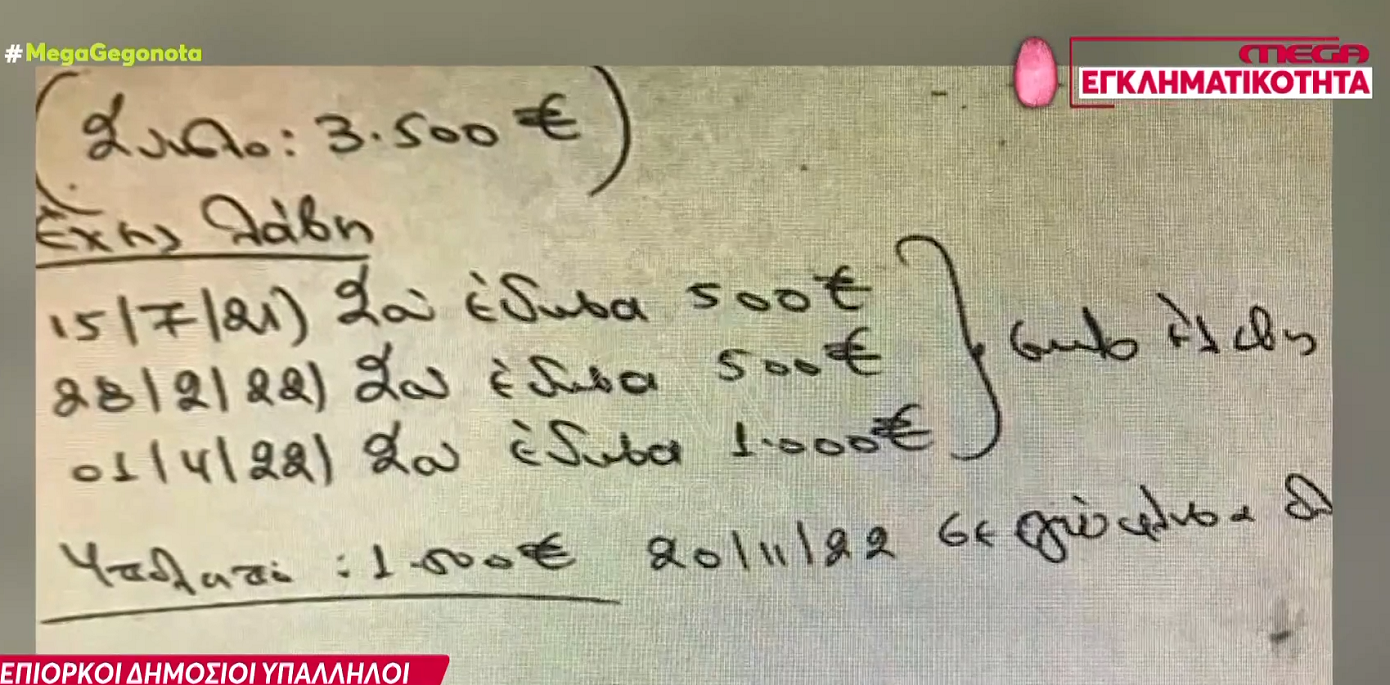 #MegaGegonota
MEGA
ΕΓΚΛΗΜΑΤΙΚΟΤΗΤΑ
(Σύνολο: 3.500 €)
Έχεις λάβη
15/7/21) Σου έδωσα 500 €
28/2/22) Σου έδωσα 500 €
01/4/22) Σου έδωσα 1.000 €
Υπόλοιπο: 1.500 € 20/11/22 σε
ΕΠΙΟΡΚΟΙ ΔΗΜΟΣΙΟΙ ΥΠΑΛΛΗΛΟΙ